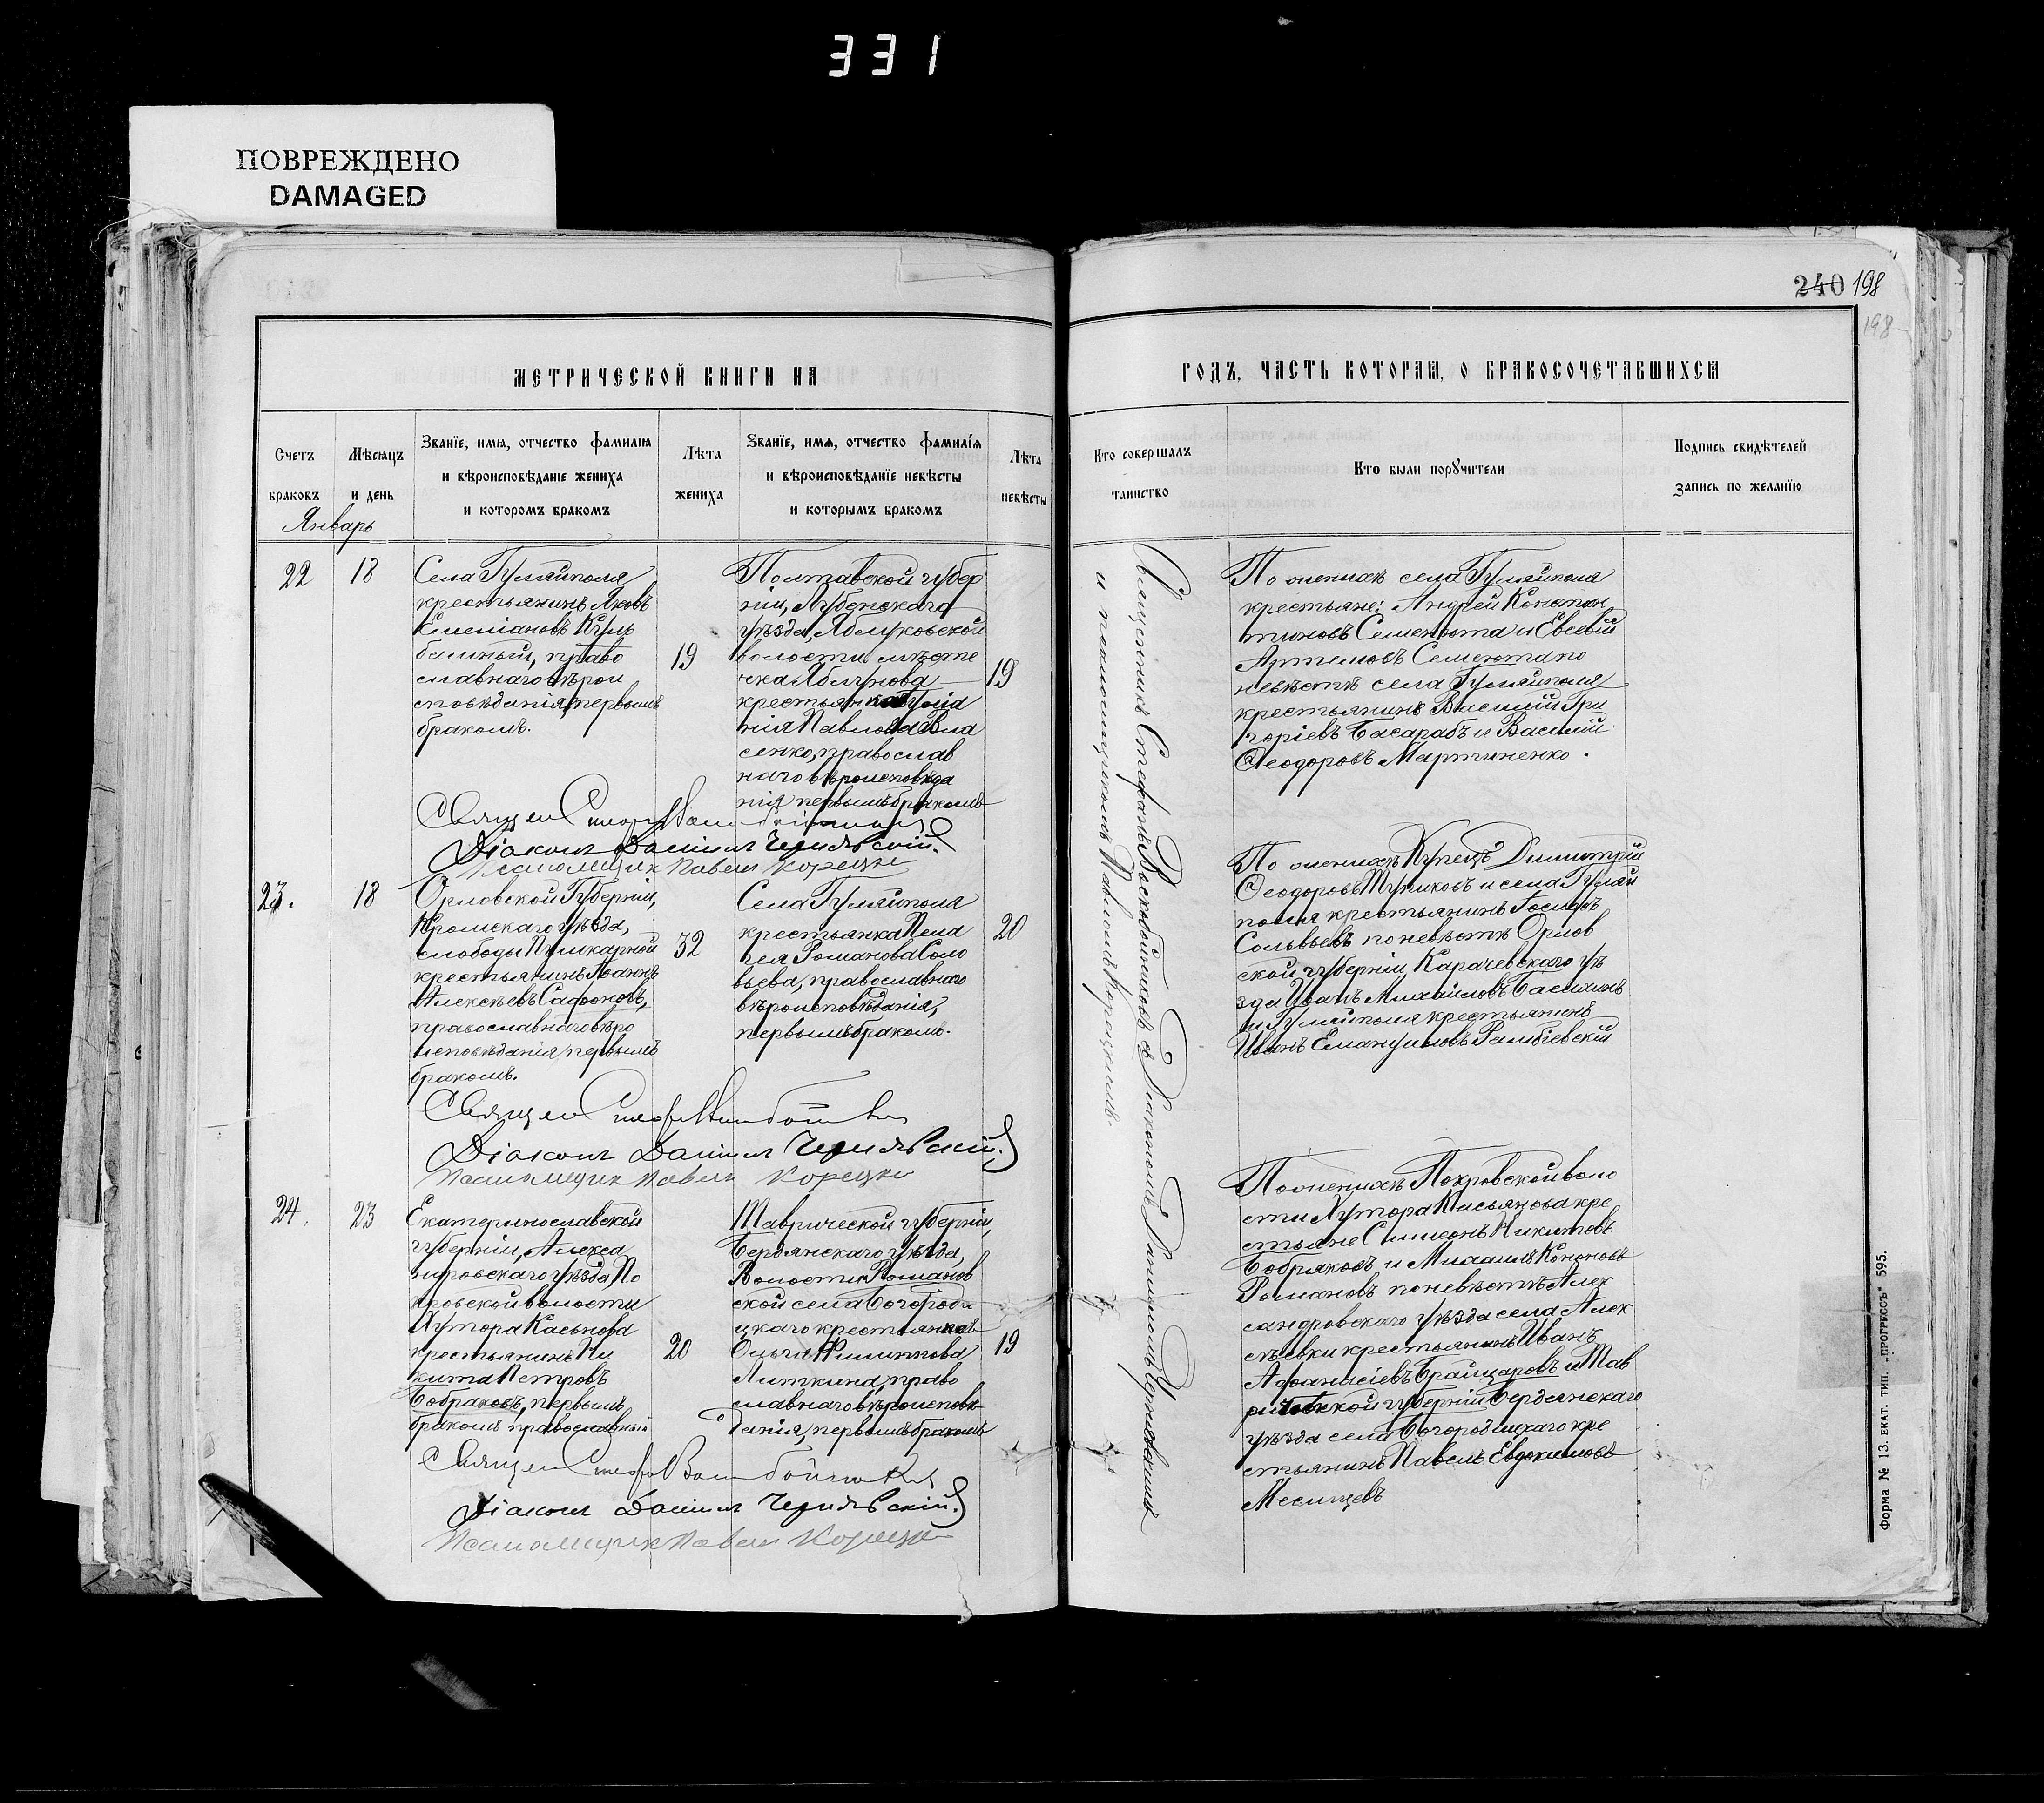 331
ПОВРЕЖДЕНО
DAMAGED
240 198
198
МЕТРИЧЕСКОЙ КНИГИ НА
ГОДЪ, ЧАСТЬ КОТОРАЯ, О БРАКОСОЧЕТАВШИХСЯ
Счетъ
браковъ
Мѣсяцъ
и день
Званіе, имя, отчество фамилія
и вѣроисповѣданіе жениха
и которомъ бракомъ
Лѣта
жениха
Званіе, имя, отчество фамилія
и вѣроисповѣданіе невѣсты
и которымъ бракомъ
Лѣта
невѣсты
Кто совершалъ
таинство
Кто были поручители
Подпись свидѣтелей
запись по желанію
Январь
22
18
Села Гуляйполя
крестьянинъ Яковъ
Емеліановъ Куль
башный, право
славнаго вѣрои
сповѣданія, первымъ
бракомъ.
19
Полтавской губер
ніи, Лубенскаго
уѣзда, Яблуковской
волости мѣсте
чка Яблунова
крестьянка
нія Павлова Вла
сенко, православ
наго вѣроисповѣда
нія первымъ бракомъ
19
Священникъ Стефанъ Воскобойниковъ съ Діакономъ Даніиломъ Чернявскимъ
и псаломщикомъ Павломъ Корецкимъ.
По женихѣ села Гуляйполя
крестьяне: Андрей Констан
тиновъ Семенюта и Евсевій
Артемовъ Семенюта по
невѣстѣ села Гуляйполя
крестьянинъ Василій Гри
горіевъ Басарабъ и Василій
Ѳеодоровъ Мартиненко.
Діаконъ Даніилъ Чернявскій.
Псаломщик Павелъ Корецкій
23.
18
Орловской Губерніи,
Кромскаго уѣзда,
слободы Пушкарной
крестьянинъ Іоаннъ
Алексѣевъ Сафоновъ,
православнаго вѣро
исповѣданія, первымъ
бракомъ.
32
Села Гуляйполя
крестьянка Пела
гея Романова Соло
вьева, православнаго
вѣроисповѣданія,
первымъ бракомъ.
20
По женихѣ Купецъ Димитрій
Ѳеодоровъ Тупиковъ и села Гуляй
поля крестьянинъ Іосифъ
Сольвьевъ по невѣстѣ Орлов
ской губерніи, Карачевскаго уѣ
зда Иванъ Михайловъ
и Гуляйполя крестьянинъ
Иванъ Емануиловъ
Діаконъ Даніилъ Чернявскій.
Псаломщик Павелъ Корецкій
24.
23
Екатеринославской
губерніи, Алекса
ндровскаго уѣзда, По
кровской волости
Хутора Касьянова
крестьянинъ Ни
кита Петровъ
Бобраковъ, первымъ
бракомъ православный
20
Таврической губерніи,
Бердянскаго уѣзда,
Волости Романов
ской села Богороди
цкаго крестьянка
Ольга Филиппова
Литкина, право
славнаго вѣроисповѣ
данія, первымъ бракомъ
19
По женихѣ Покровской воло
сти Хутора Касьянова кре
стьяне Симеонъ Никитовъ
Бобраковъ и Михаилъ Кононовъ
Романовъ по невѣстѣ Алек
сандровскаго уѣзда села Алек
сѣевки крестьянинъ Иванъ
Афанасіевъ и Тав
рической губерніи Бердянскаго
уѣзда села Богородицкаго кре
стьянинъ Павелъ Евдокимовъ
Діаконъ Даніилъ Чернявскій.
Псаломщик Павелъ Корецкій
Форма № 13. ЕКАТ. ТИП. „ПРОГРЕССЪ" 595.